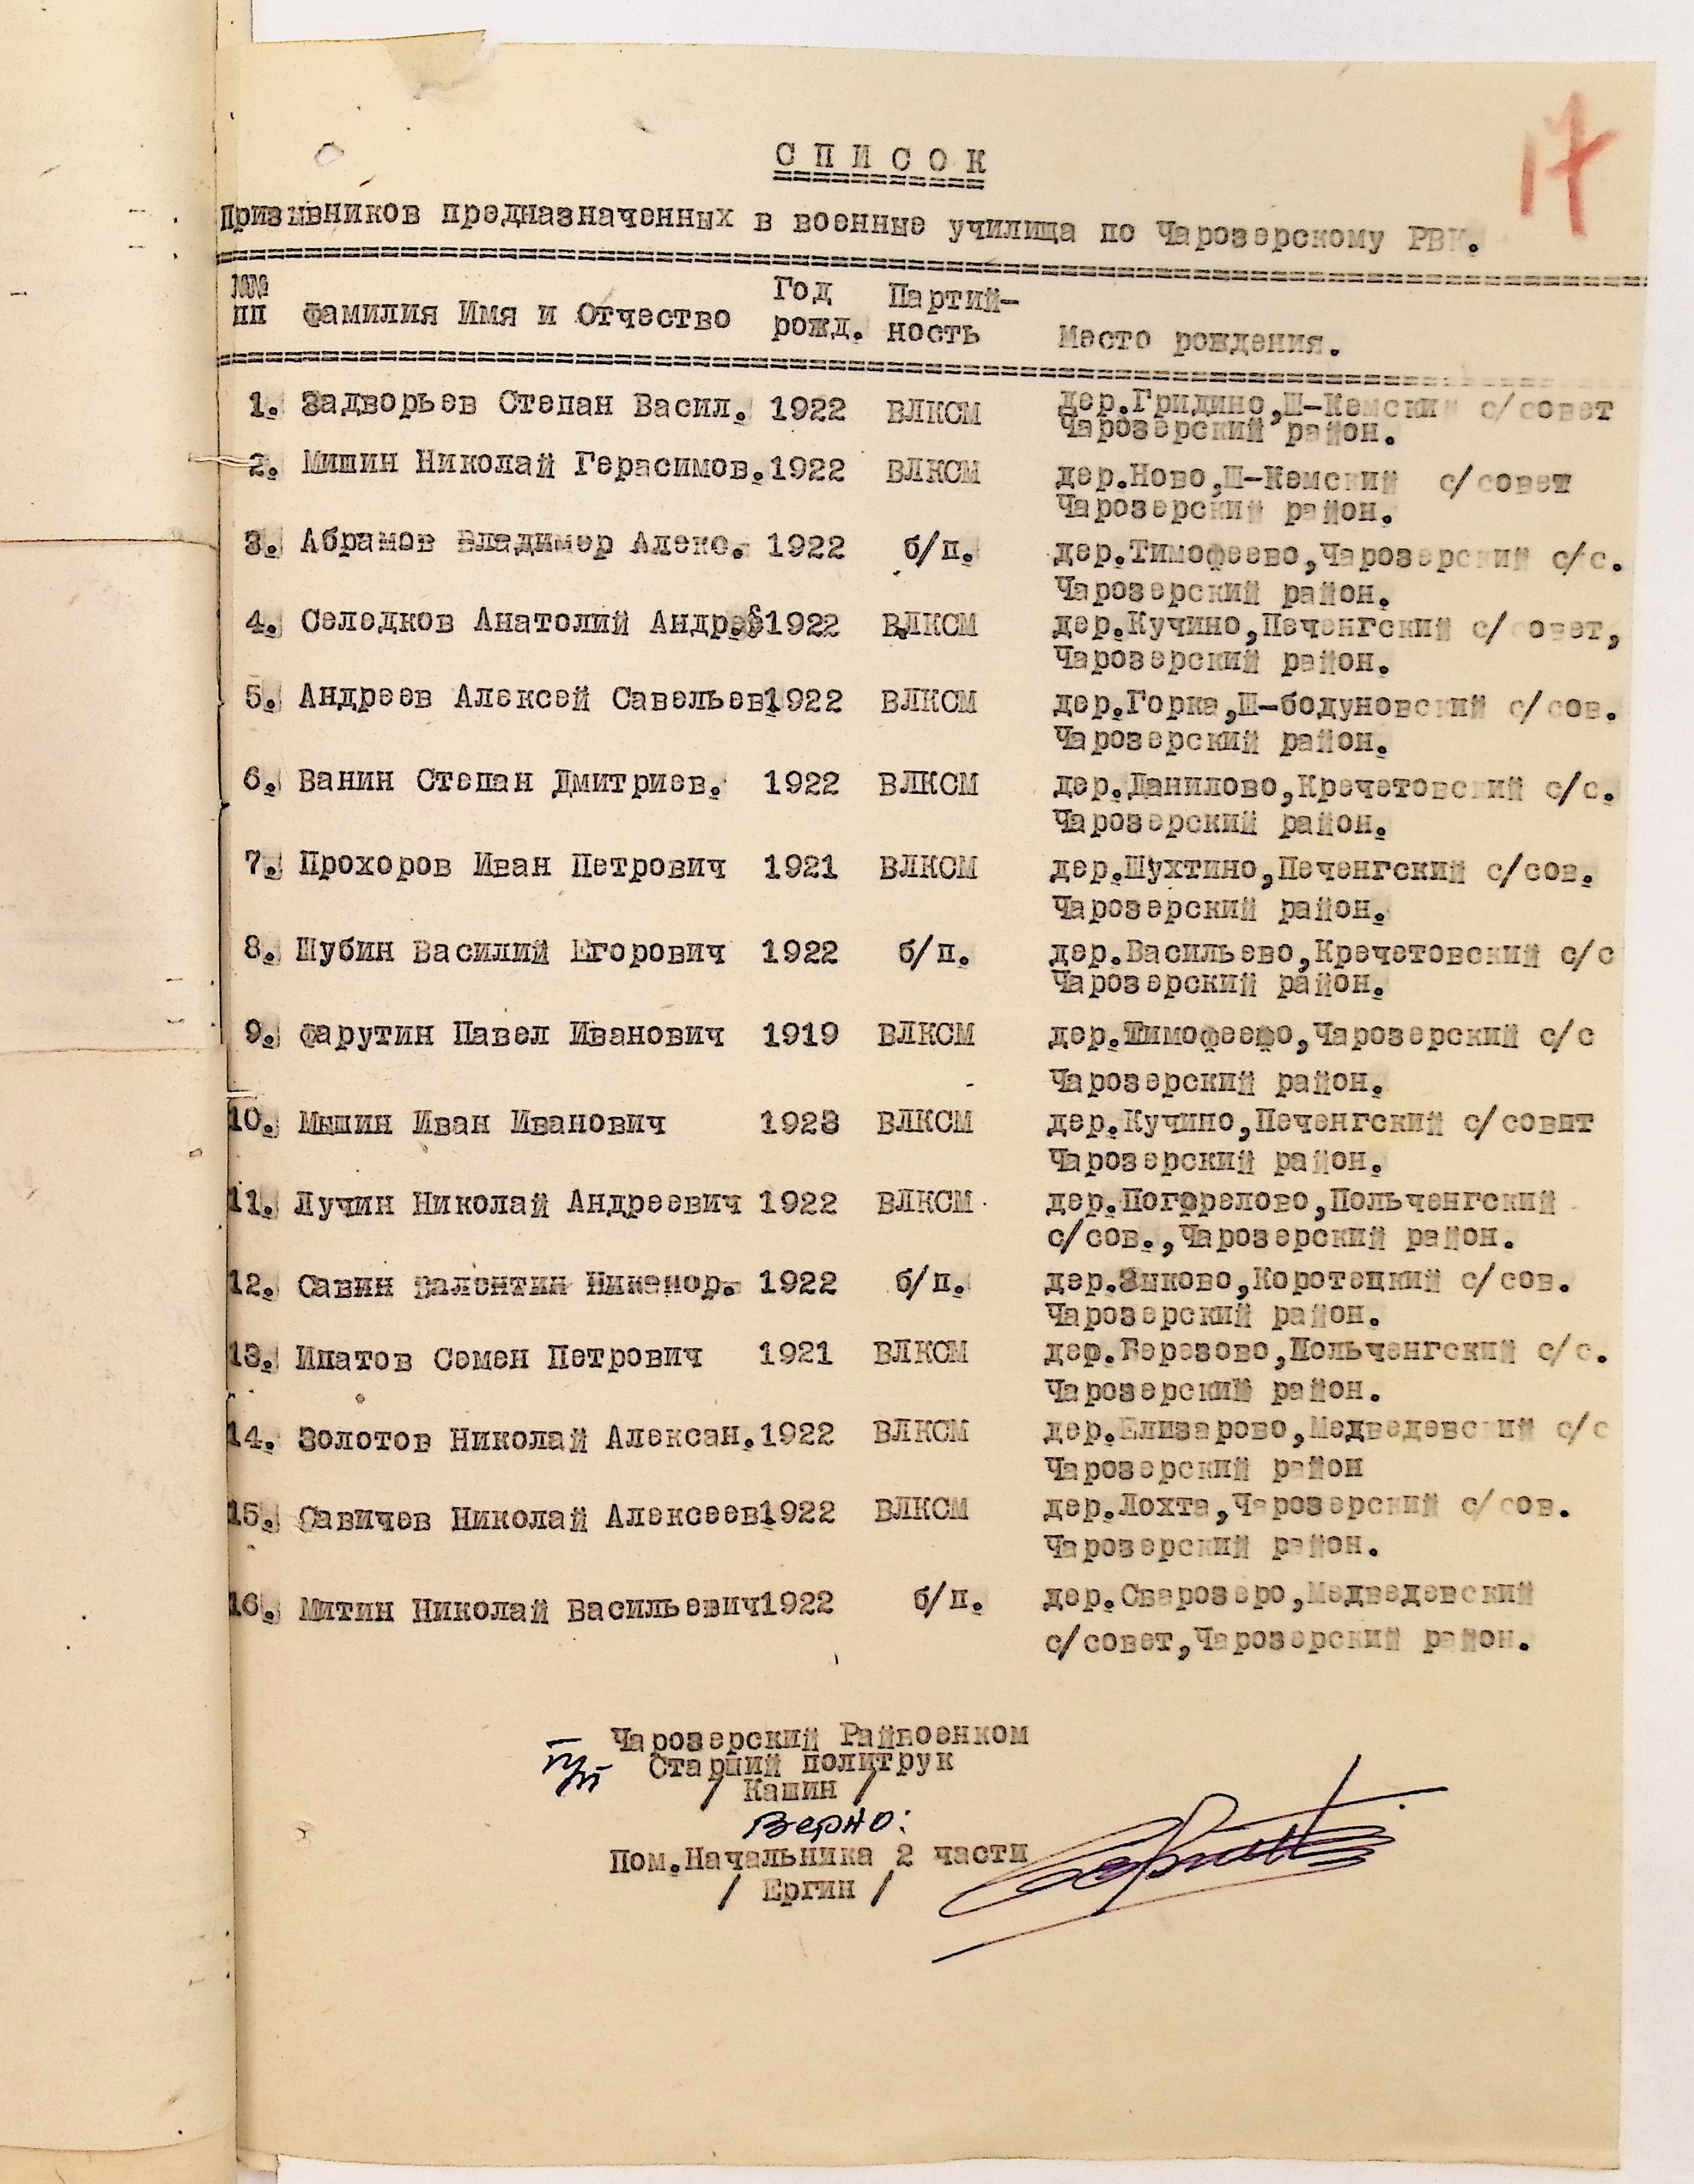 17
С П И С О К
Призывников предназначенных в военные училища по Чарозерскому РВК.
№№ пп Фамилия Имя и Отчество Год рожд. Партий-ность Место рождения.
1. Задворьев Степан Васил. 1922 ВЛКСМ дер.Гридино,Ш-Кемский с/совет
Чарозерский район.
2. Мишин Николай Герасимов. 1922 ВЛКСМ дер.Ново,Ш-Кемский с/совет
Чарозерский район.
3. Абрамов Владимер Алекс. 1922 б/п. дер.Тимофеево,Чарозерский с/с.
Чарозерский район.
4. Селедков Анатолий Андре 1922 ВЛКСМ дер.Кучино,Печенгский с/совет,
Чарозерский район.
5. Андреев Алексей Савельев. 1922 ВЛКСМ дер.Горка,Ш-бодуновский с/сов.
Чарозерский район.
6. Ванин Степан Дмитриев. 1922 ВЛКСМ дер.Данилово,Кречетовский с/с.
Чарозерский район.
7. Прохоров Иван Петрович 1921 ВЛКСМ дер.Шухтино,Печенгский с/сов.
Чарозерский район.
8. Шубин Василий Егорович 1922 б/п. дер.Васильево,Кречетовский с/с
Чарозерский район.
9. Фарутин Павел Иванович 1919 ВЛКСМ дер.Тимофеефо,Чарозерский с/с
Чарозерский район.
10. Мышин Иван Иванович 1923 ВЛКСМ дер.Кучино,Печенгский с/совят
Чарозерский район.
11. Лучин Николай Андреевич 1922 ВЛКСМ дер.Погорелово,Польченгский
с/сов.,Чарозерский район.
12. Савин Валентин Никанор. 1922 б/п. дер.Зыково,Коротецкий с/сов.
Чарозерский район.
13. Ипатов Семен Петрович 1921 ВЛКСМ дер.Березово,Польченгский с/с.
Чарозерский район.
14. Золотов Николай Алексан. 1922 ВЛКСМ дер.Елизарово,Медведевский с/с
Чарозерский район
15. Савичев Николай Алексеев. 1922 ВЛКСМ дер.Лохта,Чарозерский с/сов.
Чарозерский район.
16. Митин Николай Васильевич 1922 б/п. дер.Сварозеро,Медведевский
с/совет,Чарозерский район.
Чарозерский Райвоенком
п/п Старший политрук
/ Кашин /
Верно:
Пом.Начальника 2 части
/ Ергин /